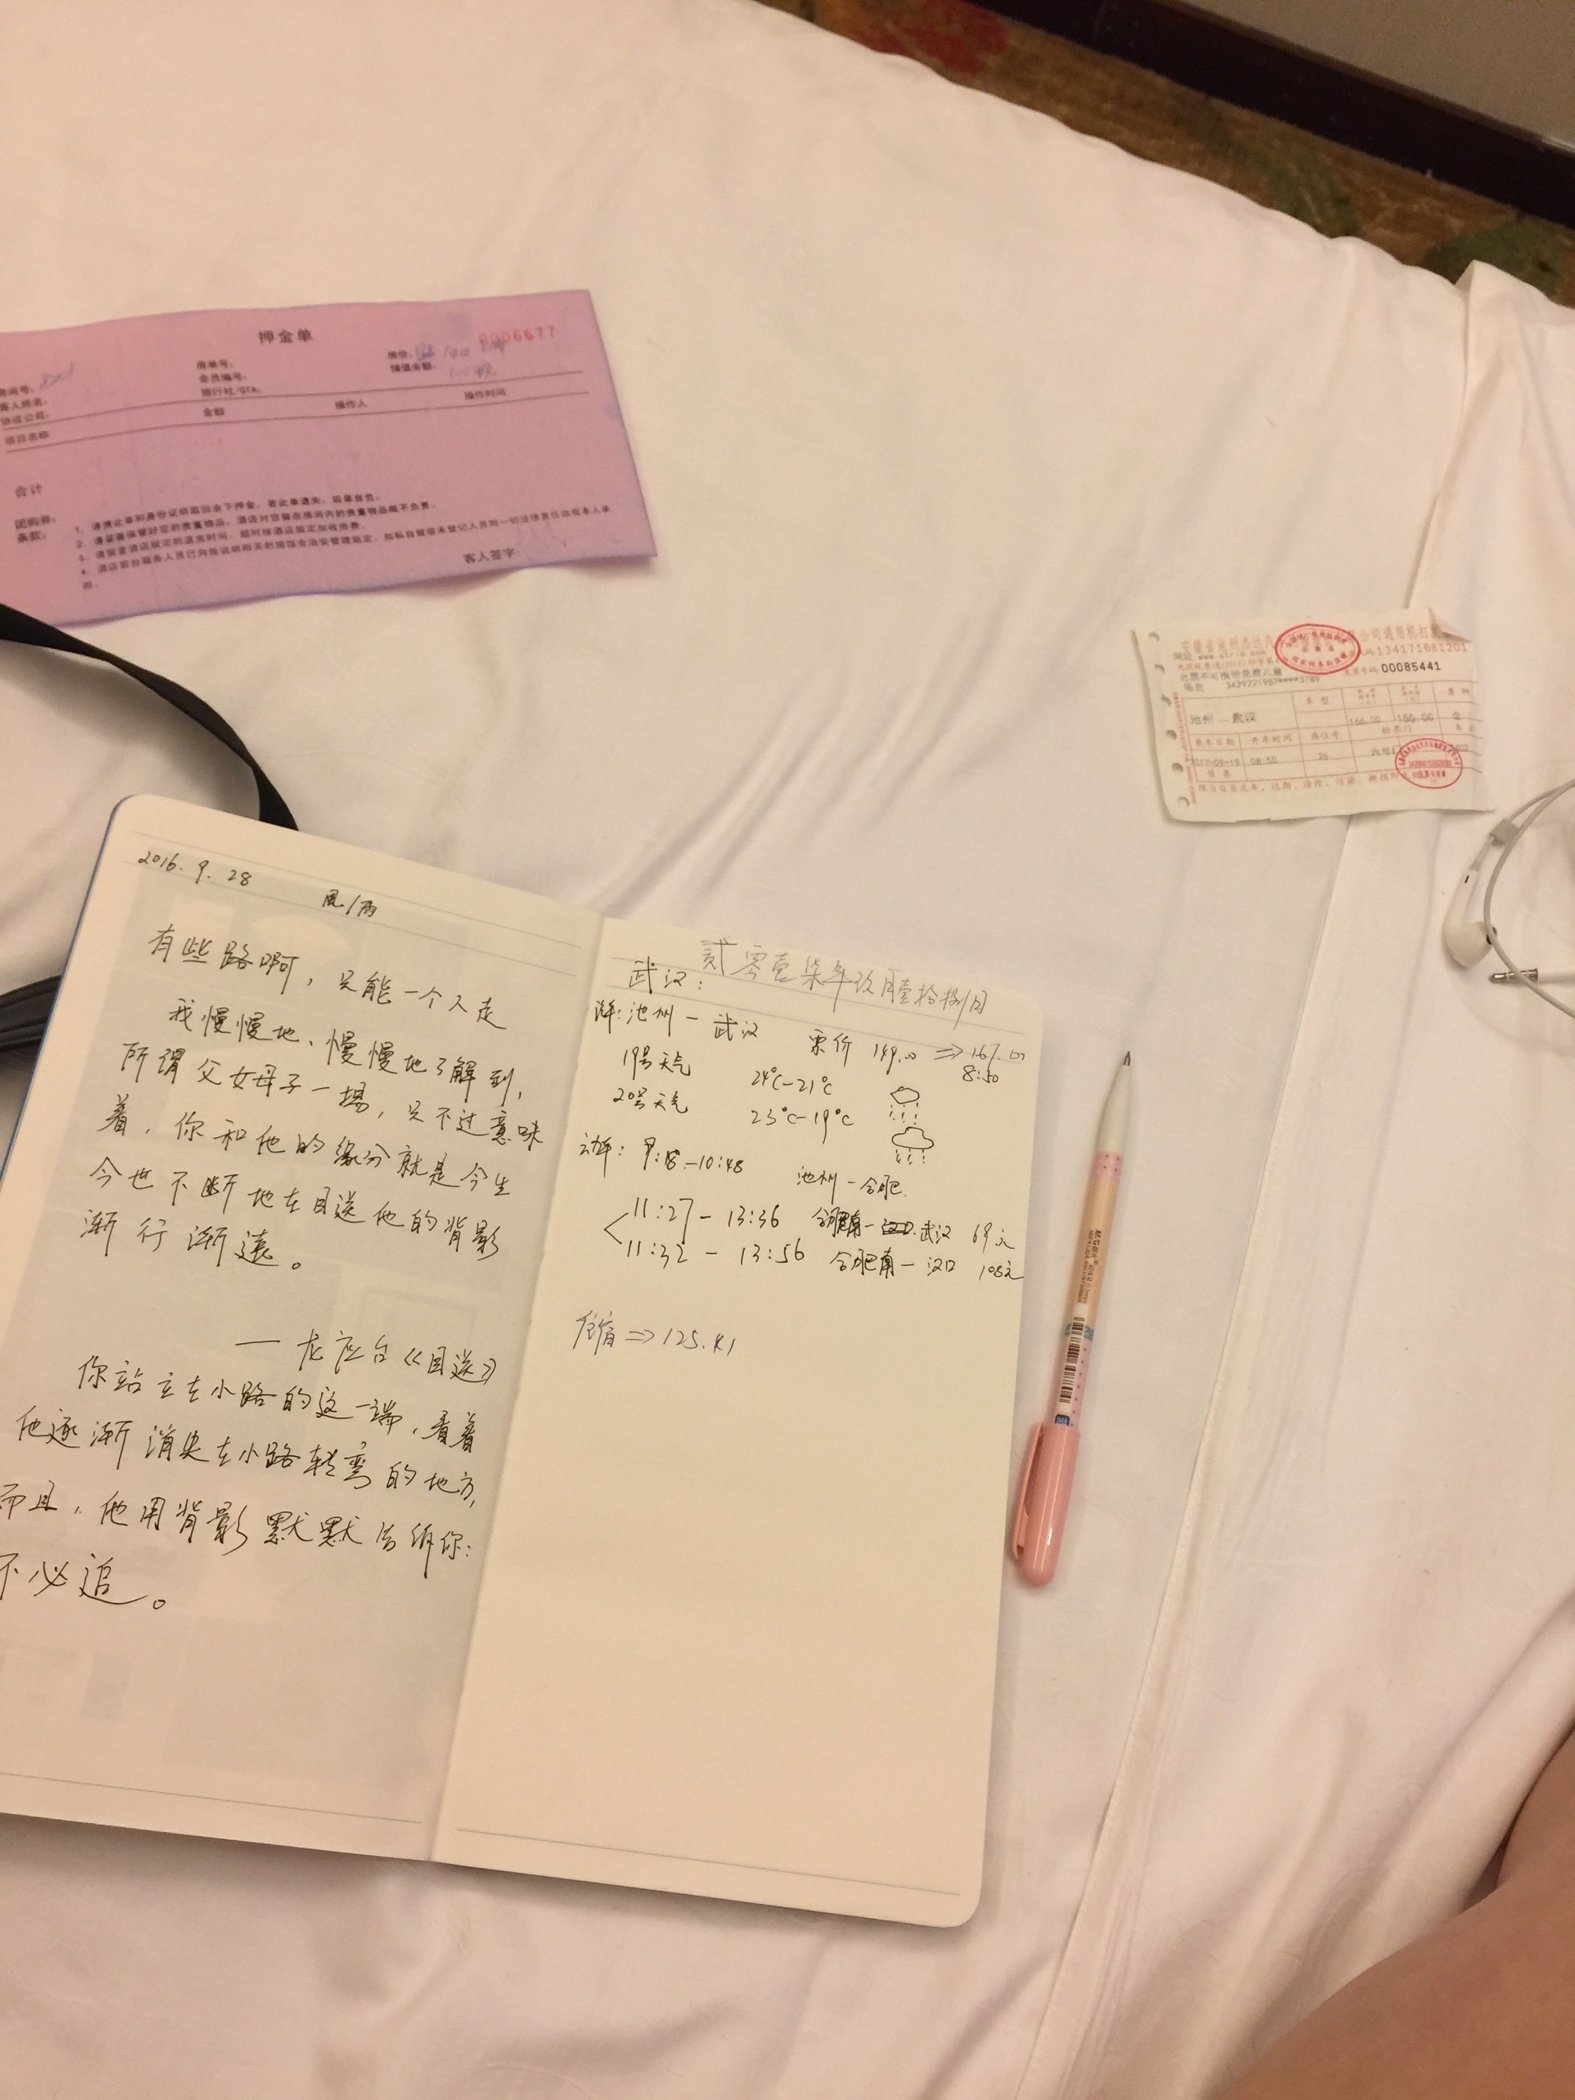 押金单
0006677
房单号:
房价:
会员编号:
储值余额:
房间号:
旅行社/OTA:
客人姓名:
协议公司:
金额
操作人
操作时间
项目名称
合计
团购券:
条款:
1、请携此单和身份证领取回余下押金,若此单遗失,后果自负。
2、请妥善保管好您的贵重物品,酒店对您留在房间内的贵重物品概不负责。
3、请留意酒店规定的退房时间,超时按酒店规定加收房费。
客人签字
134171681201
00085441
此票不可携带免费儿童
池州 — 武汉
车型
166.00
155.00
乘车日期
开车时间
座位号
检票口
2017-09-19
08:50
2016. 9. 28
風/雨
有些路啊,只能一个人走
我慢慢地、慢慢地了解到,
所谓父女母子一場,只不过意味
着,你和他的缘分就是今生
今世不断地在目送他的背影
渐行渐遠。
— 龙应台《目送》
你站立在小路的这一端,看着
他逐渐消失在小路转弯的地方,
而且,他用背影默默告诉你:
不必追。
武汉:
池州 — 武汉 票价 149.00 ⇒ 167.00
8:50
19号天气 24℃-21℃
20号天气 23℃-19℃
动车: 9:18-10:48 池州-合肥.
11:27 - 13:36 合肥南-武汉 69元
11:32 - 13:56 合肥南-汉口 108元
住宿 ⇒ 125.41
M&G